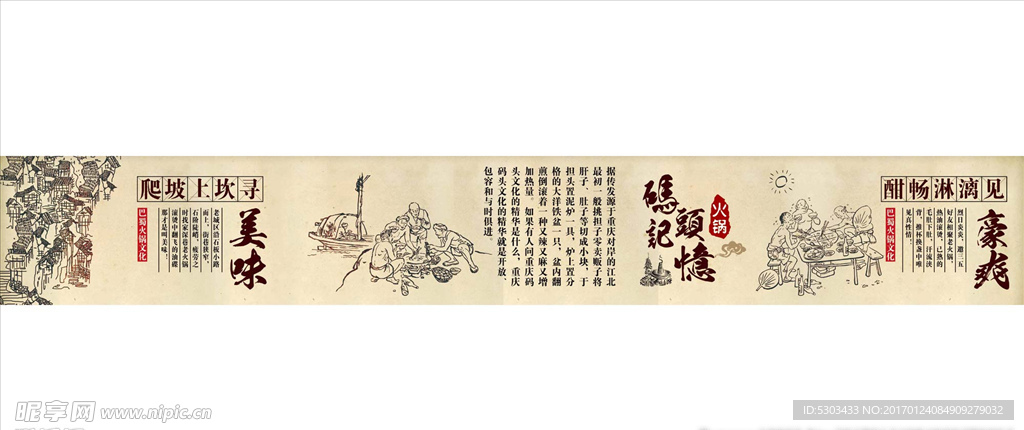 爬坡上坎寻
美味
老城区沿石板小路
而上，街巷狭窄，
石阶陡峭，疲劳之
时找家深巷老火锅
滚烫中翻飞的油碟
那才是叫美味。
巴蜀火锅文化
据传发源于重庆对岸的江北
最初一般挑担子零卖贩子将
肝子、肚子等切成小块，于
担头置泥炉一具，炉上置分
格的大洋铁盆一只，盆内翻
煎倒滚着一种又辣又麻又增
加热量。如果有人问重庆码
头文化的精华是什么，重庆
码头文化的精华就是开放、
包容和与时俱进。
碼頭記憶
火锅
酣畅淋漓见
豪爽
烈日炎炎，邀三五
好友相聚老火锅，
热油滚烫，已熟的
毛肚下肚，汗流浃
背，推杯换盏中唯
见真性情。
巴蜀火锅文化
昵享网 www.nipic.cn
ID:5303433 NO:20170124084909279032